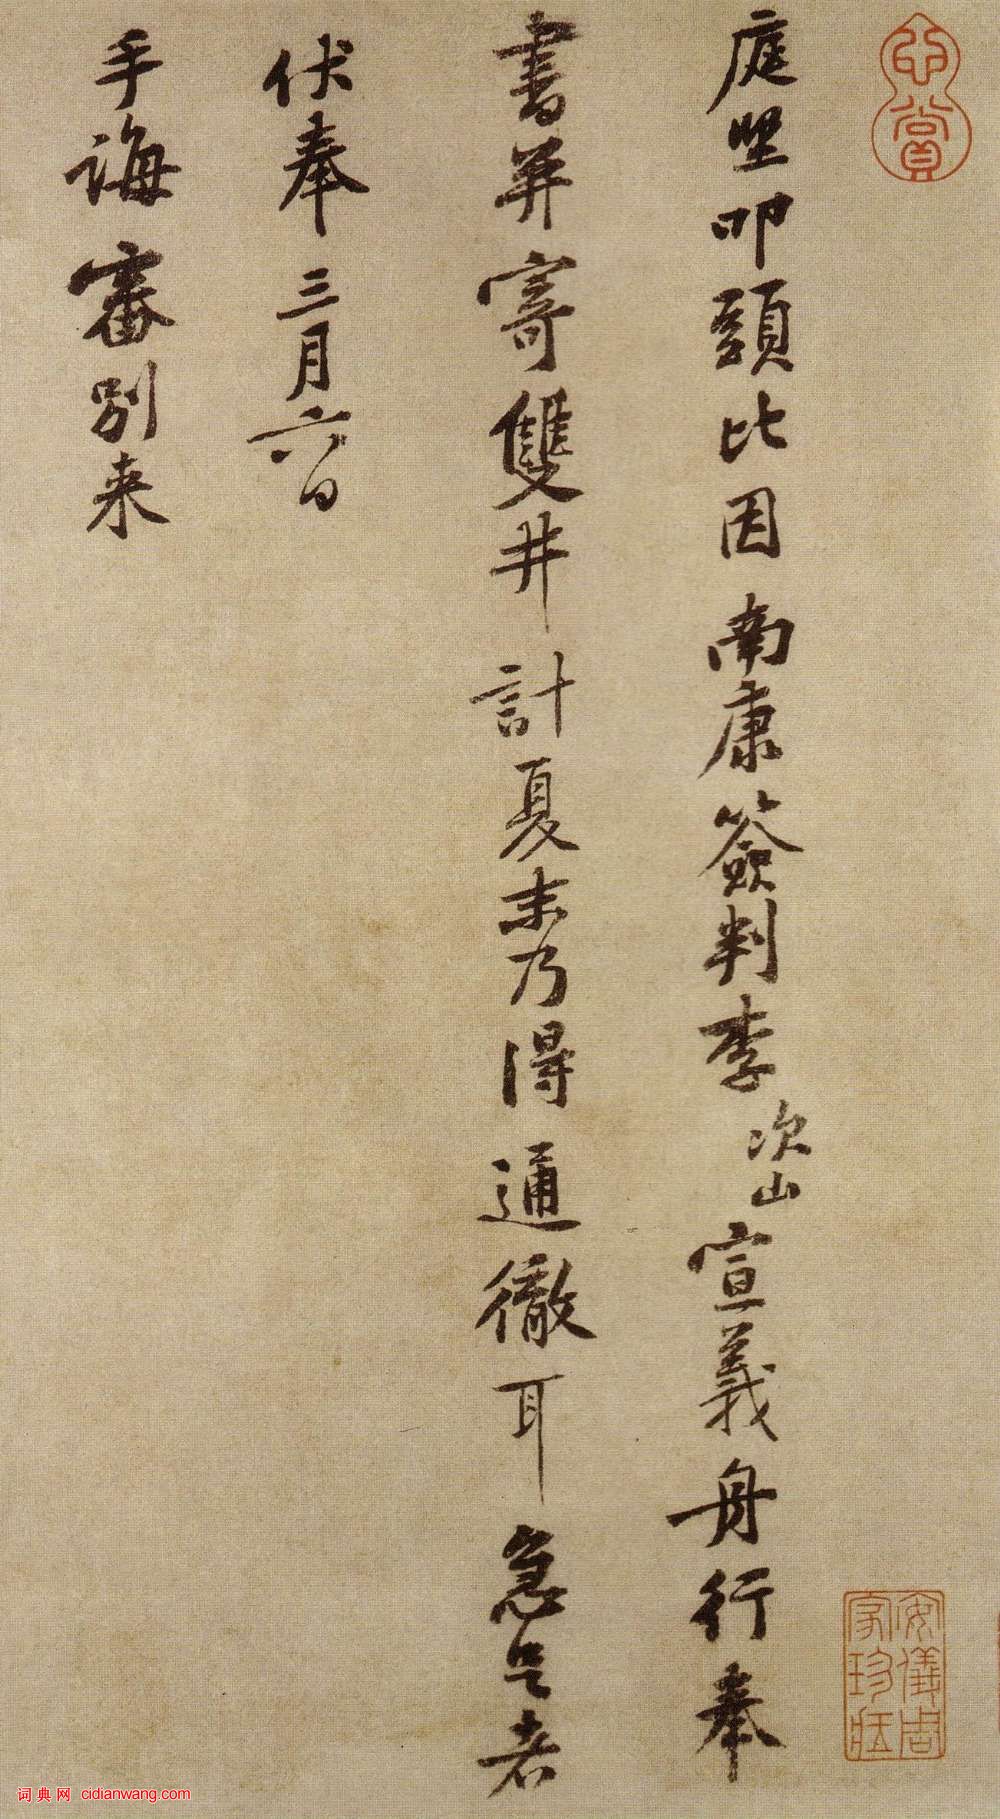 心賞
庭堅叩頭比因南康簽判李次山宣義舟行奉
書并寄雙井計夏末乃得通徹耳急足者
伏奉三月六日
手誨審別来
安儀周家珍藏
词典网 cidianwang.com